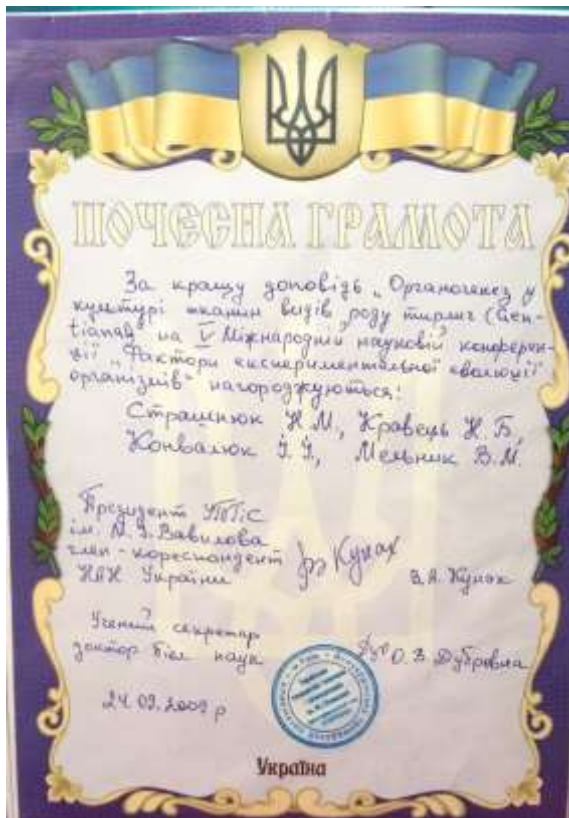 ПОЧЕСНА ГРАМОТА
За кращу доповідь „Органогенез у
культурі тканин видів роду тирлич (Gen-
tiana)" на V Міжнародній науковій конферен-
ції „Фактори експериментальної еволюції
організмів" нагороджуються:
Страшнюк Н.М., Кравець Н.Б.,
Конвалюк І.І., Мельник В.М.
Президент УТГіС
ім. М.І. Вавилова
член-кореспондент
НАН України
Кунах
В.А. Кунах
Учений секретар
доктор біол наук
О.В. Дубровна
24.09.2009 р
Україна